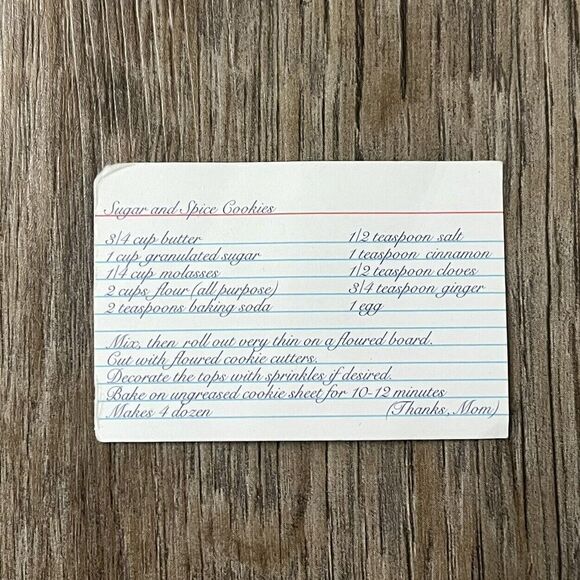 Sugar and Spice Cookies
3/4 cup butter 1/2 teaspoon salt
1 cup granulated sugar 1 teaspoon cinnamon
1/4 cup molasses 1/2 teaspoon cloves
2 cups flour (all purpose) 3/4 teaspoon ginger
2 teaspoons baking soda 1 egg
Mix, then roll out very thin on a floured board.
Cut with floured cookie cutters.
Decorate the tops with sprinkles if desired.
Bake on ungreased cookie sheet for 10-12 minutes
Makes 4 dozen (Thanks, Mom)